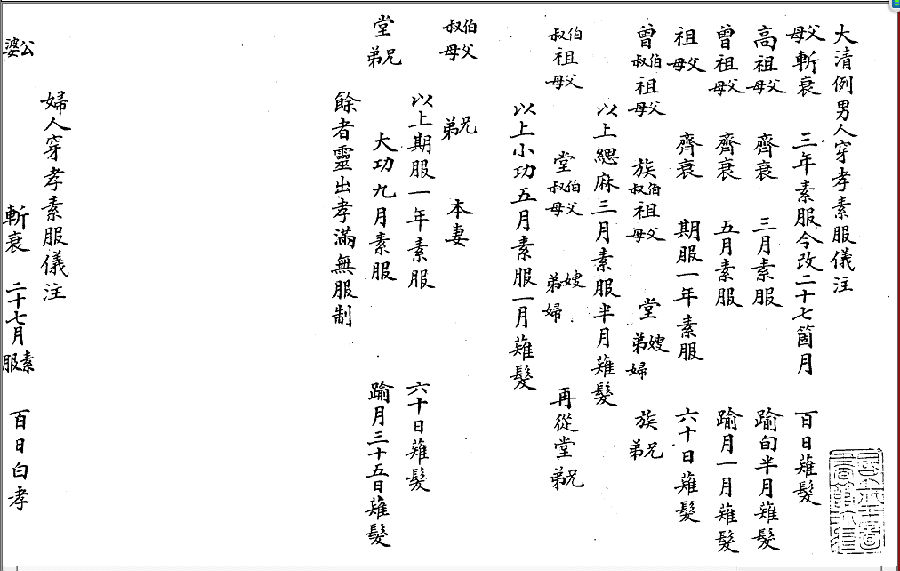 大清例男人穿孝素服儀注
父母斬衰 三年素服今改二十七箇月 百日薙髮
高祖父母 齊衰 三月素服 踰旬半月薙髮
曾祖父母 齊衰 五月素服 踰月一月薙髮
祖父母 齊衰 期服一年素服 六十日薙髮
曾伯叔祖父母 族伯叔祖父母 堂嫂弟婦 族兄弟
以上緦麻三月素服半月薙髮
伯叔祖父母 堂伯叔父母 嫂弟婦 再從堂兄弟
以上小功五月素服一月薙髮
伯叔父母 兄弟 本妻
以上期服一年素服 六十日薙髮
堂兄弟 大功九月素服 踰月三十五日薙髮
餘者靈出孝滿無服制
婦人穿孝素服儀注
公婆 斬衰 二十七月素服 百日白孝